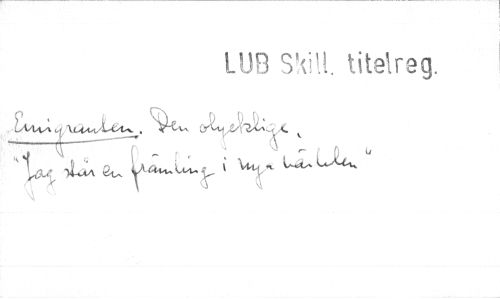 LUB Skill. titelreg.
Emigranten. Den olycklige.
"Jag står en främling i nya världen"